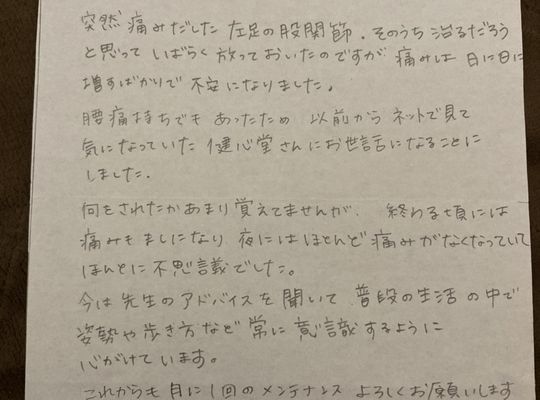 突然 痛みだした 左足の股関節。そのうち 治るだろう
と思って しばらく 放っておいたのですが 痛みは 日に日に
増すばかりで 不安になりました。
腰痛持ちでも あったため 以前から ネットで見て
気になっていた 健心堂さんにお世話になることに
しました。
何をされたかあまり覚えてませんが、終わる頃には
痛みもましになり 夜にはほとんど痛みがなくなっていて
ほんとに不思議でした。
今は先生のアドバイスを聞いて 普段の生活の中で
姿勢や歩き方など常に意識するように
心がけています。
これからも月に1回のメンテナンス よろしくお願いします